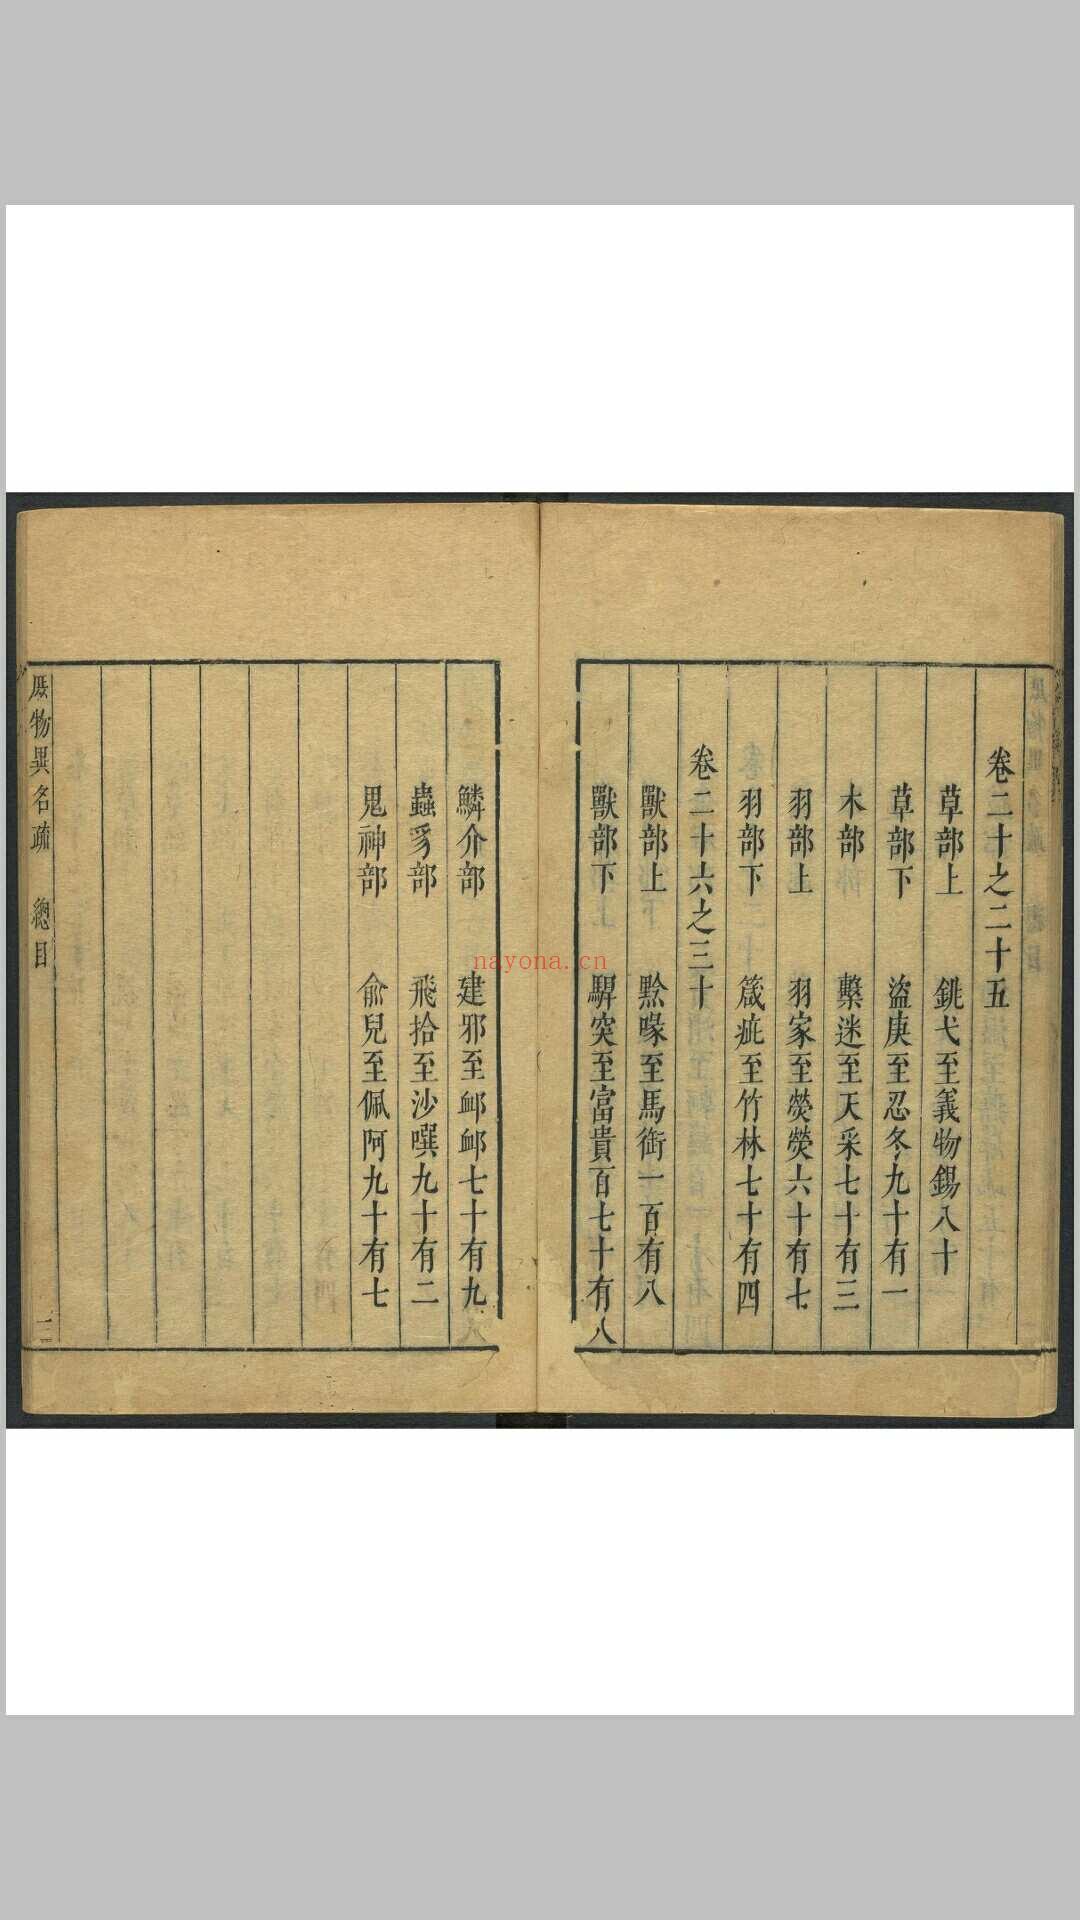 卷二十之二十五
草部上 銚弋至義物錫八十
草部下 盜庚至忍冬九十有一
木部 檕迷至天采七十有三
羽部上 羽家至熒熒六十有七
羽部下 箴疵至竹林七十有四
卷二十六之三十
獸部上 黥喙至馬銜一百有八
獸部下 騨突至富貴百七十有八
鱗介部 建邪至䘏䘏七十有九
蟲豸部 飛拾至沙噀九十有二
鬼神部 俞兒至佩阿九十有七
庶物異名疏 總目 三
nayona.cn